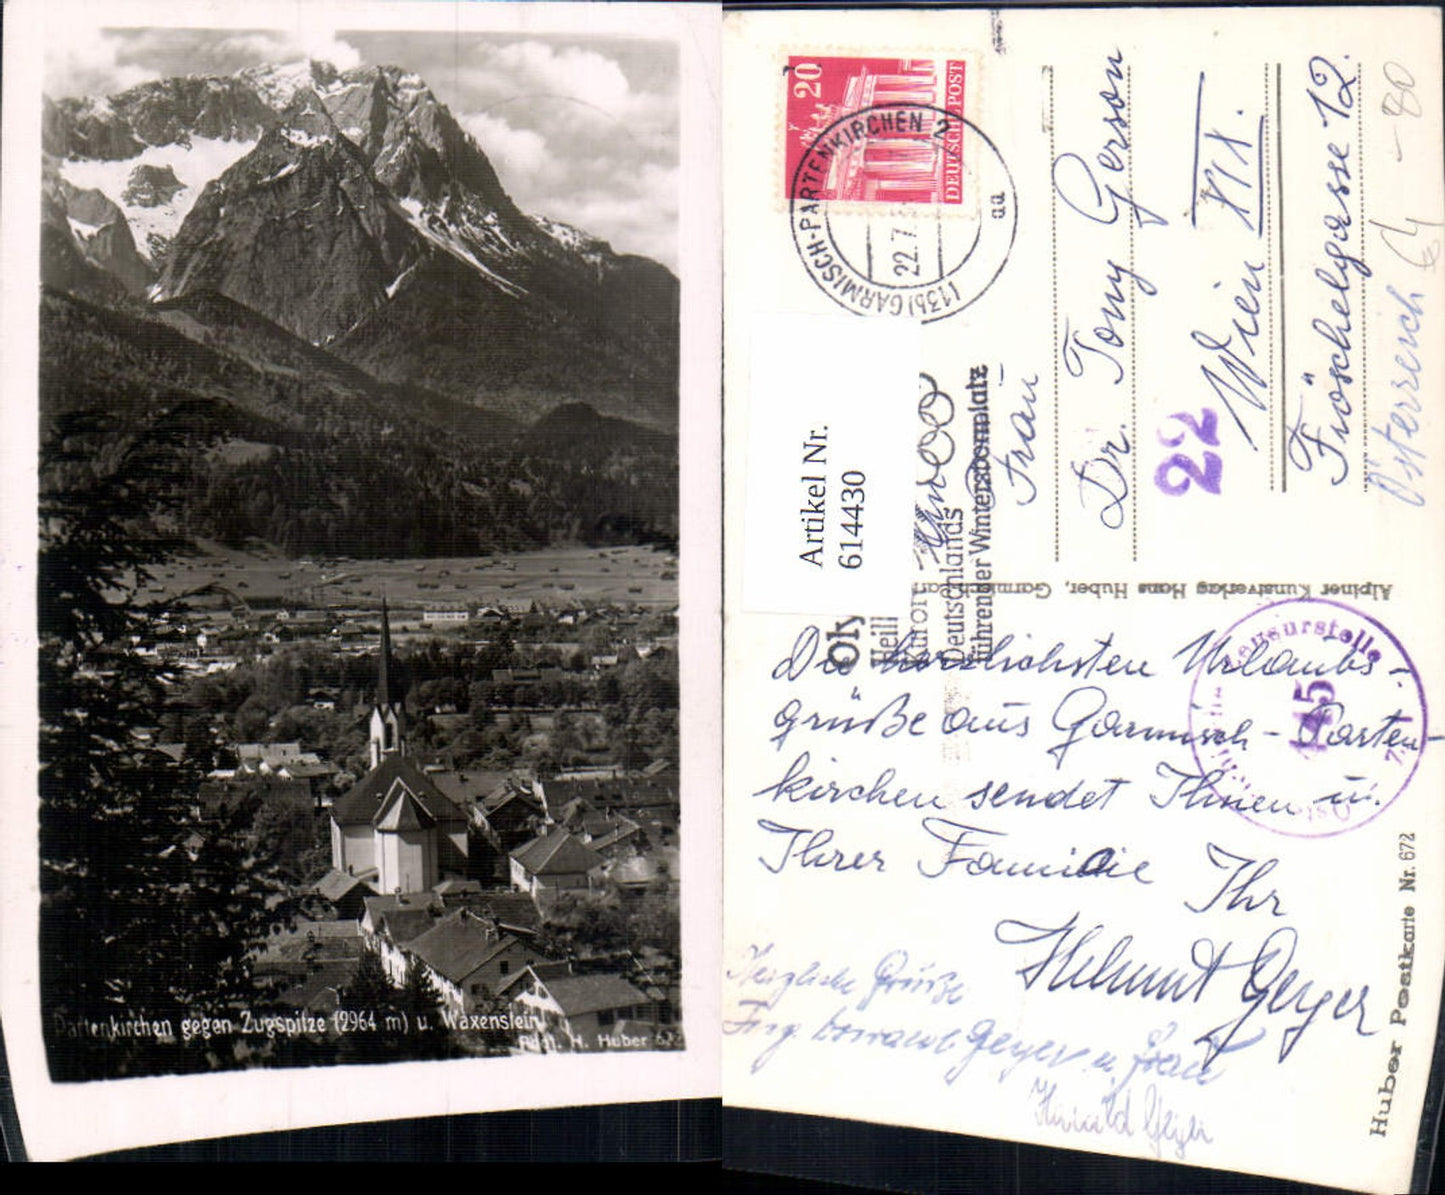 Partenkirchen gegen Zugspitze (2964 m) u. Waxenstein
H. Huber 672
20
DEUTSCHE POST
(13b) GARMISCH-PARTENKIRCHEN 2
22.7.
aa
Artikel Nr.
614430
Oly
Heil
Kurort
Deutschlands
führender Wintersportplatz
Frau
Dr. Tony Gerson
Wien XIX.
22
Fröschelgasse 12.
Österreich
64 -80
Alpiner Kunstverlag Hans Huber, Garmisch-Part
Zensurstelle
145
Die herzlichsten Urlaubs-
grüße aus Garmisch-Parten-
kirchen sendet Ihnen u.
Ihrer Familie
Ihr
Helmut Geyer
Herzliche Grüße
Geyer u Frau
Harald Geyer
Huber Postkarte Nr. 672